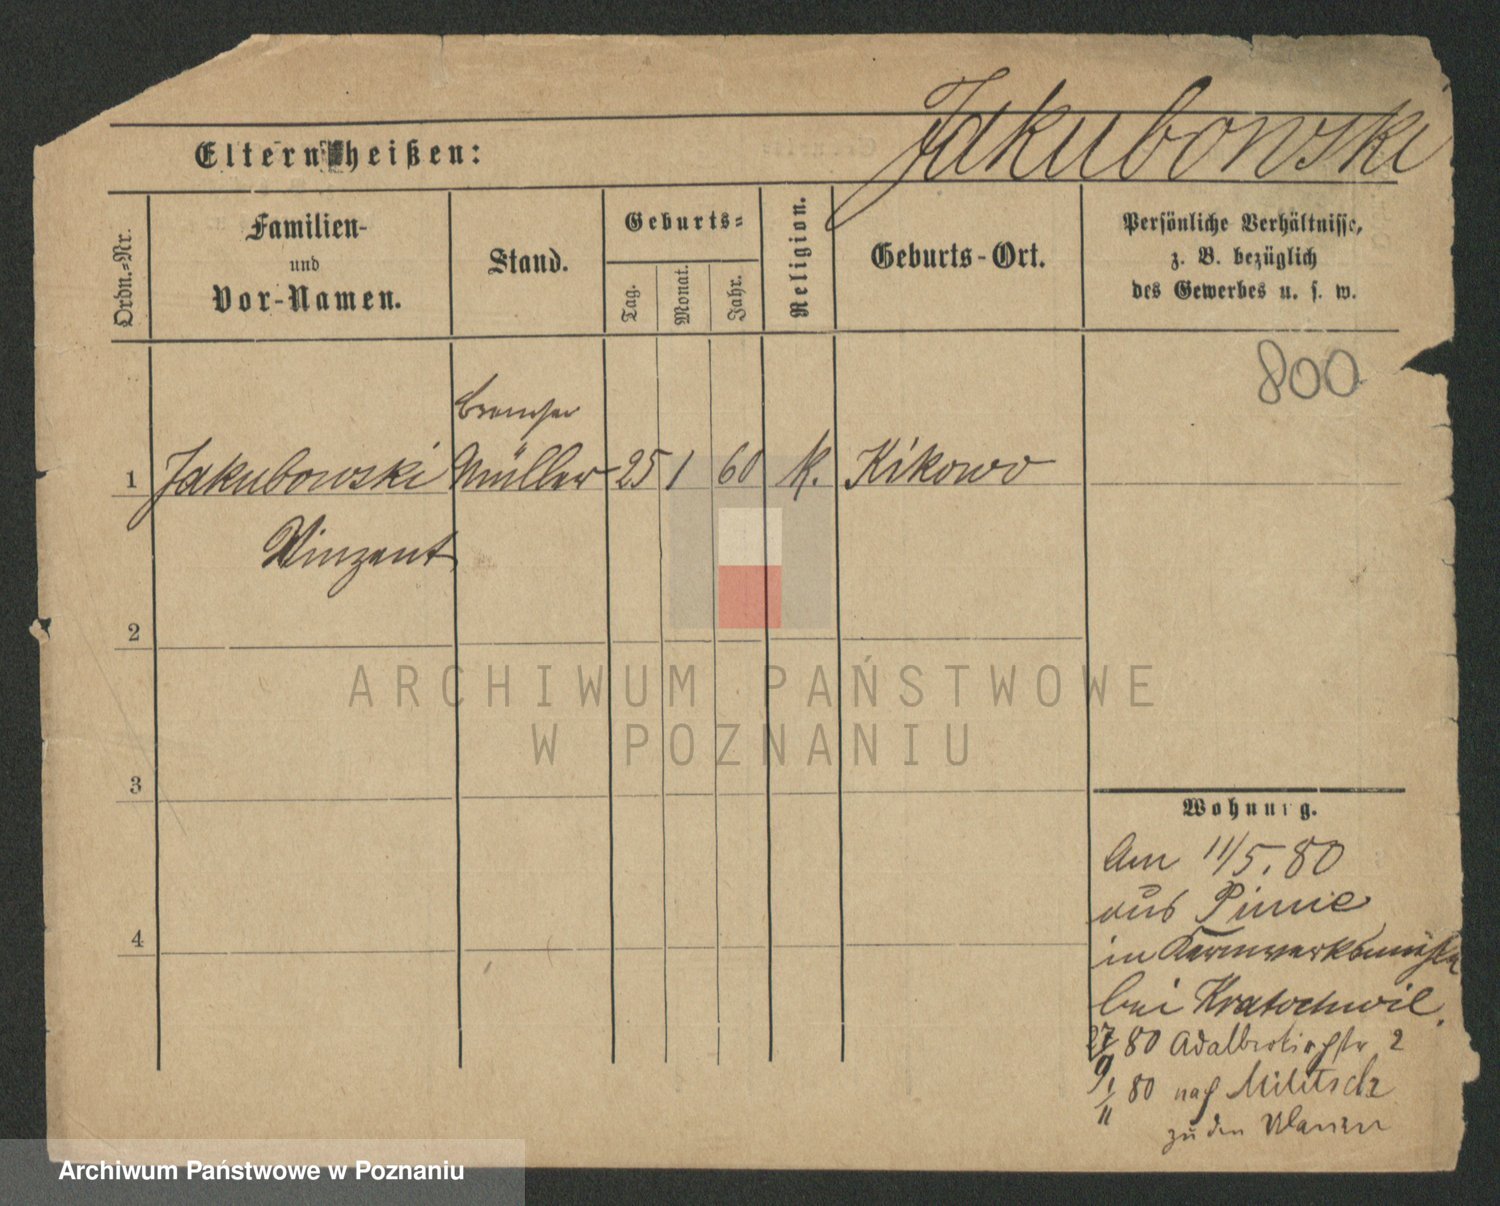 Jakubowski
Eltern heißen:
Ordn.=Nr.
Familien-
und
Vor-Namen.
Stand.
Geburts=
Tag.
Monat.
Jahr.
Religion.
Geburts-Ort.
Persönliche Verhältnisse,
z. B. bezüglich
des Gewerbes u. s. w.
800
1 Jakubowski Müller 25 1 60 K. Kikowo
Vinzent
2
3
4
Wohnung.
Am 11/5. 80
aus Pinne
in
bei Kratochwil.
27/9 80 Adalbertkirchstr 2
1/11 80 nach Militsch
zu den Ulanen
ARCHIWUM PAŃSTWOWE
W POZNANIU
Archiwum Państwowe w Poznaniu